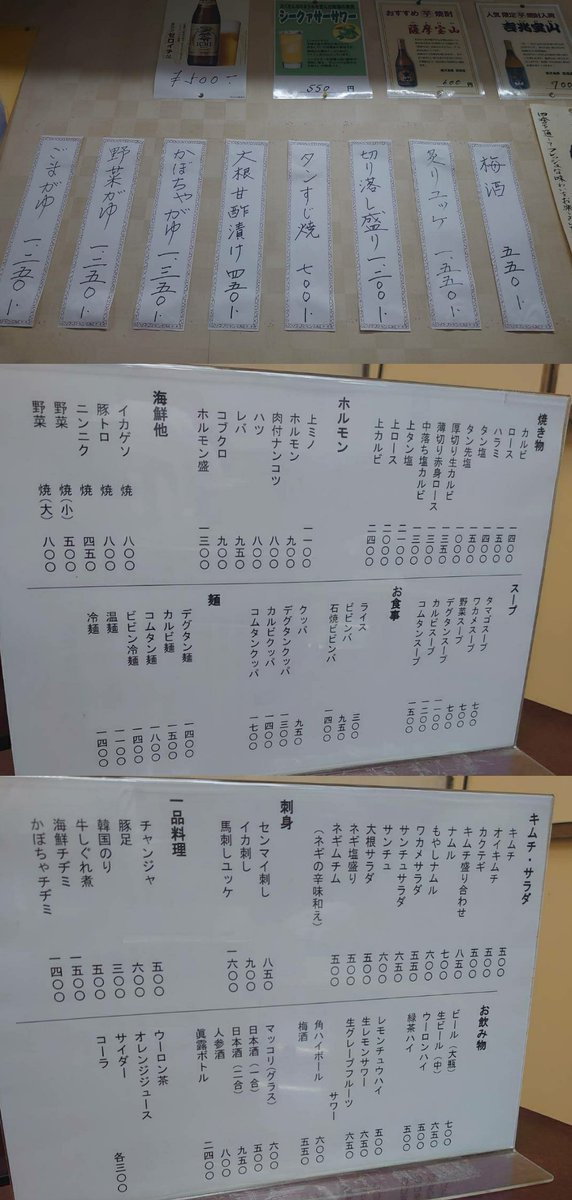 ¥500-
シークァサーサワー
550円
おすすめ芋焼酎
薩摩宝山
600円
人気限定芋焼酎入荷
吉兆宝山
700
梅酒 五五〇
炙りユッケ 一、五五〇
切り落し盛り 一、二〇〇
タンすじ焼 七〇〇
大根甘酢漬け 四五〇
かぼちゃがゆ 一、三五〇
野菜がゆ 一、二五〇
ごまがゆ 一、二五〇
焼き物
カルビ 一四〇〇
ロース 一五〇〇
ハラミ 一四〇〇
タン塩 一五〇〇
タン先塩 一〇〇〇
厚切り生カルビ 一五〇〇
薄切り赤身ロース 一三五〇
中落ち塩カルビ 一三〇〇
上タン塩 二一〇〇
上ロース 二〇〇〇
上カルビ 二四〇〇
ホルモン
上ミノ 一一〇〇
ホルモン 九〇〇
肉付ナンコツ 八〇〇
ハツ 八〇〇
レバ 九五〇
コブクロ 九〇〇
ホルモン盛 一三〇〇
海鮮他
イカゲソ 焼 八〇〇
豚トロ 焼 八〇〇
ニンニク 焼 四五〇
野菜 焼(小) 五〇〇
野菜 焼(大) 八〇〇
スープ
タマゴスープ 七〇〇
ワカメスープ 七〇〇
野菜スープ 七〇〇
デグタンスープ 一一〇〇
カルビスープ 一二〇〇
コムタンスープ 一五〇〇
お食事
ライス 三〇〇
ビビンバ 九五〇
石焼ビビンバ 一四〇〇
クッパ 九五〇
デグタンクッパ 一三〇〇
カルビクッパ 一四〇〇
コムタンクッパ 一七〇〇
麺
デグタン麺 一四〇〇
カルビ麺 一五〇〇
コムタン麺 一八〇〇
ビビン冷麺 一四〇〇
温麺 一一〇〇
冷麺 一四〇〇
キムチ・サラダ
キムチ 五〇〇
オイキムチ 五〇〇
カクテギ 五〇〇
キムチ盛り合わせ 八五〇
ナムル 七〇〇
もやしナムル 六〇〇
ワカメサラダ 六五〇
サンチュサラダ 六五〇
サンチュ 六〇〇
大根サラダ 五〇〇
ネギ塩盛り 五〇〇
ネギムチム 五〇〇
(ネギの辛味和え)
刺身
センマイ刺し 八五〇
イカ刺し 九〇〇
馬刺しユッケ 一六〇〇
一品料理
チャンジャ 五〇〇
豚足 六〇〇
韓国のり 三〇〇
牛しぐれ煮 五〇〇
海鮮チヂミ 一五〇〇
かぼちゃチヂミ 一四〇〇
お飲み物
ビール(大瓶) 七〇〇
生ビール(中) 六五〇
ウーロンハイ 五〇〇
緑茶ハイ 五〇〇
レモンチュウハイ 五〇〇
生レモンサワー 六五〇
生グレープフルーツサワー 六五〇
角ハイボール 六〇〇
梅酒 五五〇
マッコリ(グラス) 六〇〇
日本酒(一合) 五〇〇
日本酒(二合) 九五〇
人参酒 八〇〇
眞露ボトル 二四〇〇
ウーロン茶
オレンジジュース
サイダー
コーラ
各三〇〇